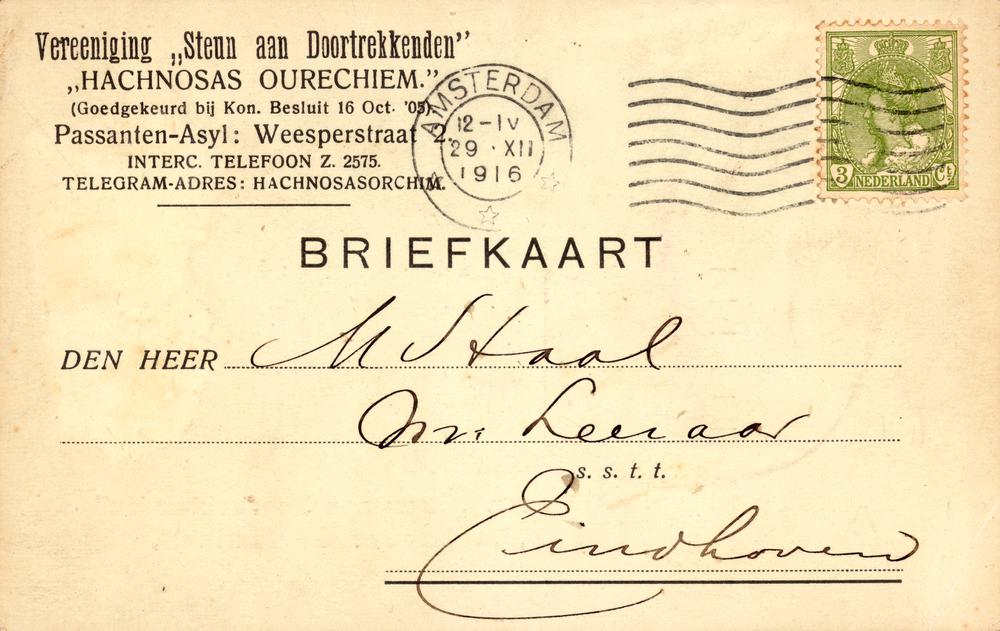 Vereeniging „Steun aan Doortrekkenden”
„HACHNOSAS OURECHIEM.”
(Goedgekeurd bij Kon. Besluit 16 Oct. '05)
Passanten-Asyl: Weesperstraat 2.
INTERC. TELEFOON Z. 2575.
TELEGRAM-ADRES: HACHNOSASORCHIM.
AMSTERDAM
12-IV
29 · XII
1916
3 NEDERLAND Ct
BRIEFKAART
DEN HEER M Staal
Nr: Leeraar
s. s. t. t.
Eindhoven